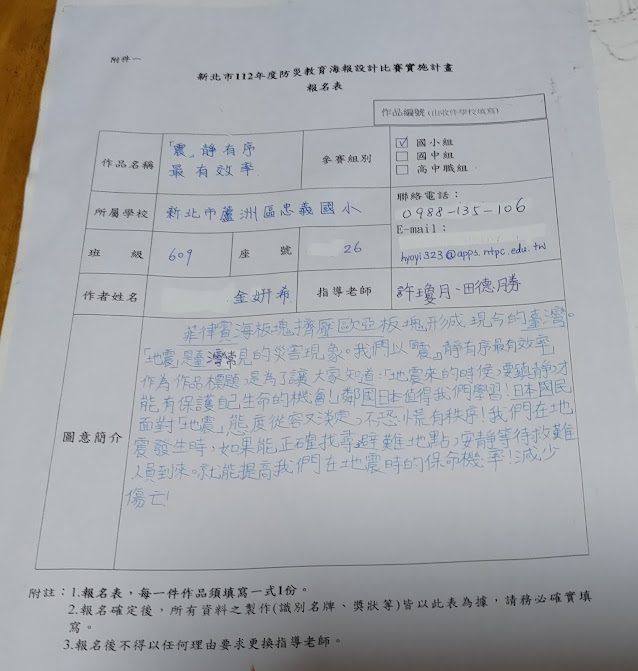 附件一
新北市112年度防災教育海報設計比賽實施計畫
報名表
作品編號(由收件學校填寫)
作品名稱
「震」靜有序
最有效率
參賽組別
☑ 國小組
☐ 國中組
☐ 高中職組
所屬學校
新北市蘆洲區忠義國小
聯絡電話：
0988-135-106
E-mail：
hyoyi323@apps.ntpc.edu.tw
班級
609
座號
26
作者姓名
金妍希
指導老師
許瓊月、田德勝
圖意簡介
菲律賓海板塊擠壓歐亞板塊形成現今的臺灣。
「地震」是臺灣常見的災害現象。我們以「震」靜有序最有效率
作為作品標題,是為了讓大家知道:「地震來的時候,要鎮靜才
能有保護自己生命的機會!」鄰國日本值得我們學習!日本國民
面對「地震」態度從容又淡定,不恐慌有秩序!我們在地
震發生時,如果能正確找尋避難地點,安靜等待救難
人員到來。就能提高我們在地震時的保命機率!減少
傷亡!
附註：1.報名表，每一件作品須填寫一式1份。
2.報名確定後，所有資料之製作(識別名牌、獎狀等)皆以此表為據，請務必確實填
寫。
3.報名後不得以任何理由要求更換指導老師。